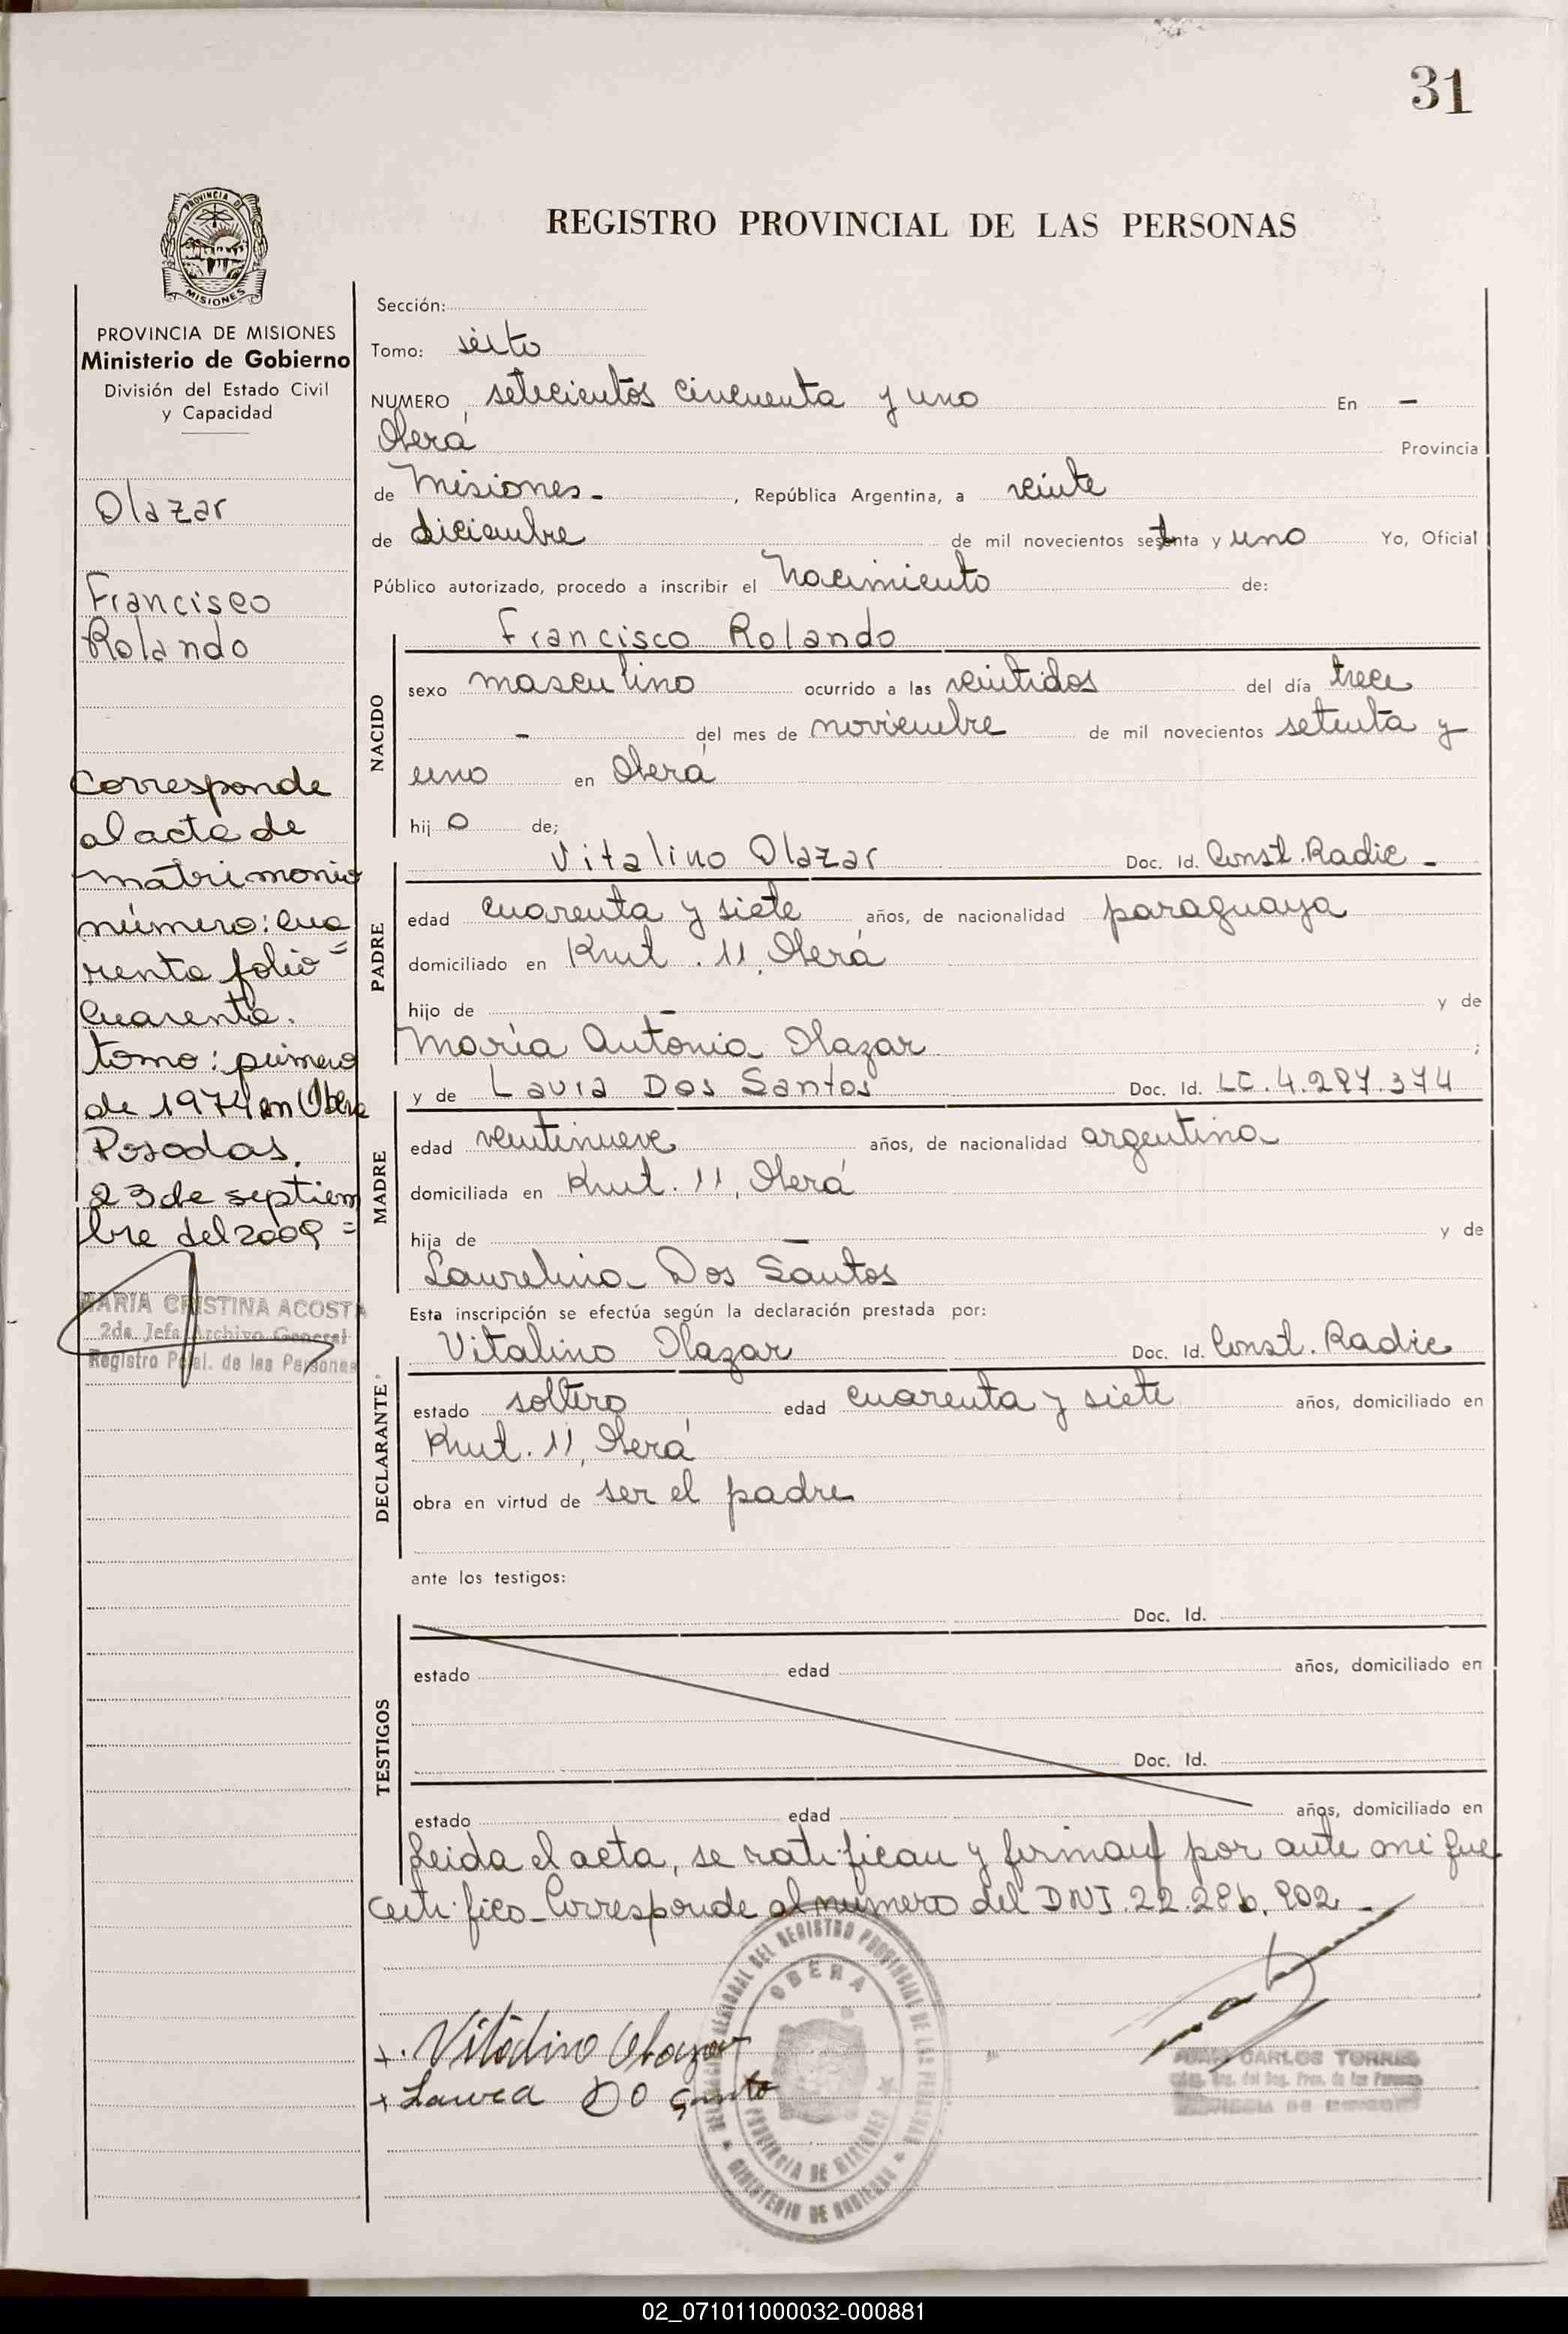 31
PROVINCIA DE
MISIONES
REGISTRO PROVINCIAL DE LAS PERSONAS
PROVINCIA DE MISIONES
Ministerio de Gobierno
División del Estado Civil
y Capacidad
Olazar
Francisco
Rolando
Corresponde
al acta de
matrimonio
número: cua=
renta folio
cuarenta.
tomo: primero
de 1974 en Oberá
Posadas.
23 de septiem=
bre del 2009
MARIA CRISTINA ACOSTA
2da. Jefa Archivo General
Registro Pcial. de las Personas
Sección:
Tomo: sexto
NUMERO setecientos cincuenta y uno En -
Oberá Provincia
de Misiones - , República Argentina, a veinte
de diciembre de mil novecientos setenta y uno Yo, Oficial
Público autorizado, procedo a inscribir el Nacimiento de:
NACIDO
Francisco Rolando
sexo masculino ocurrido a las veintidos del día trece
- del mes de noviembre de mil novecientos setenta y
uno en Oberá
hij o de;
PADRE
Vitalino Olazar Doc. Id. Const. Radic -
edad cuarenta y siete años, de nacionalidad paraguaya
domiciliado en Kmt. 11, Oberá
hijo de - y de
María Antonia Olazar ;
MADRE
y de Laura Dos Santos Doc. Id. LC. 4.287.374
edad veintinueve años, de nacionalidad argentina
domiciliada en Kmt. 11, Oberá
hija de - y de
Laurelina Dos Santos
Esta inscripción se efectúa según la declaración prestada por:
DECLARANTE
Vitalino Olazar Doc. Id. Const. Radic
estado soltero edad cuarenta y siete años, domiciliado en
Kmt. 11, Oberá
obra en virtud de ser el padre
ante los testigos:
TESTIGOS
Doc. Id.
estado edad años, domiciliado en
Doc. Id.
estado edad años, domiciliado en
Leida el acta, se ratifican y firman por ante mi que
certifico - Corresponde al número del DNI. 22.286.802 -
OBERA
PROVINCIA DE MISIONES
+. Vitalino Olazar
+ Laura Do Santo
JUAN CARLOS TORRES
02_071011000032-000881